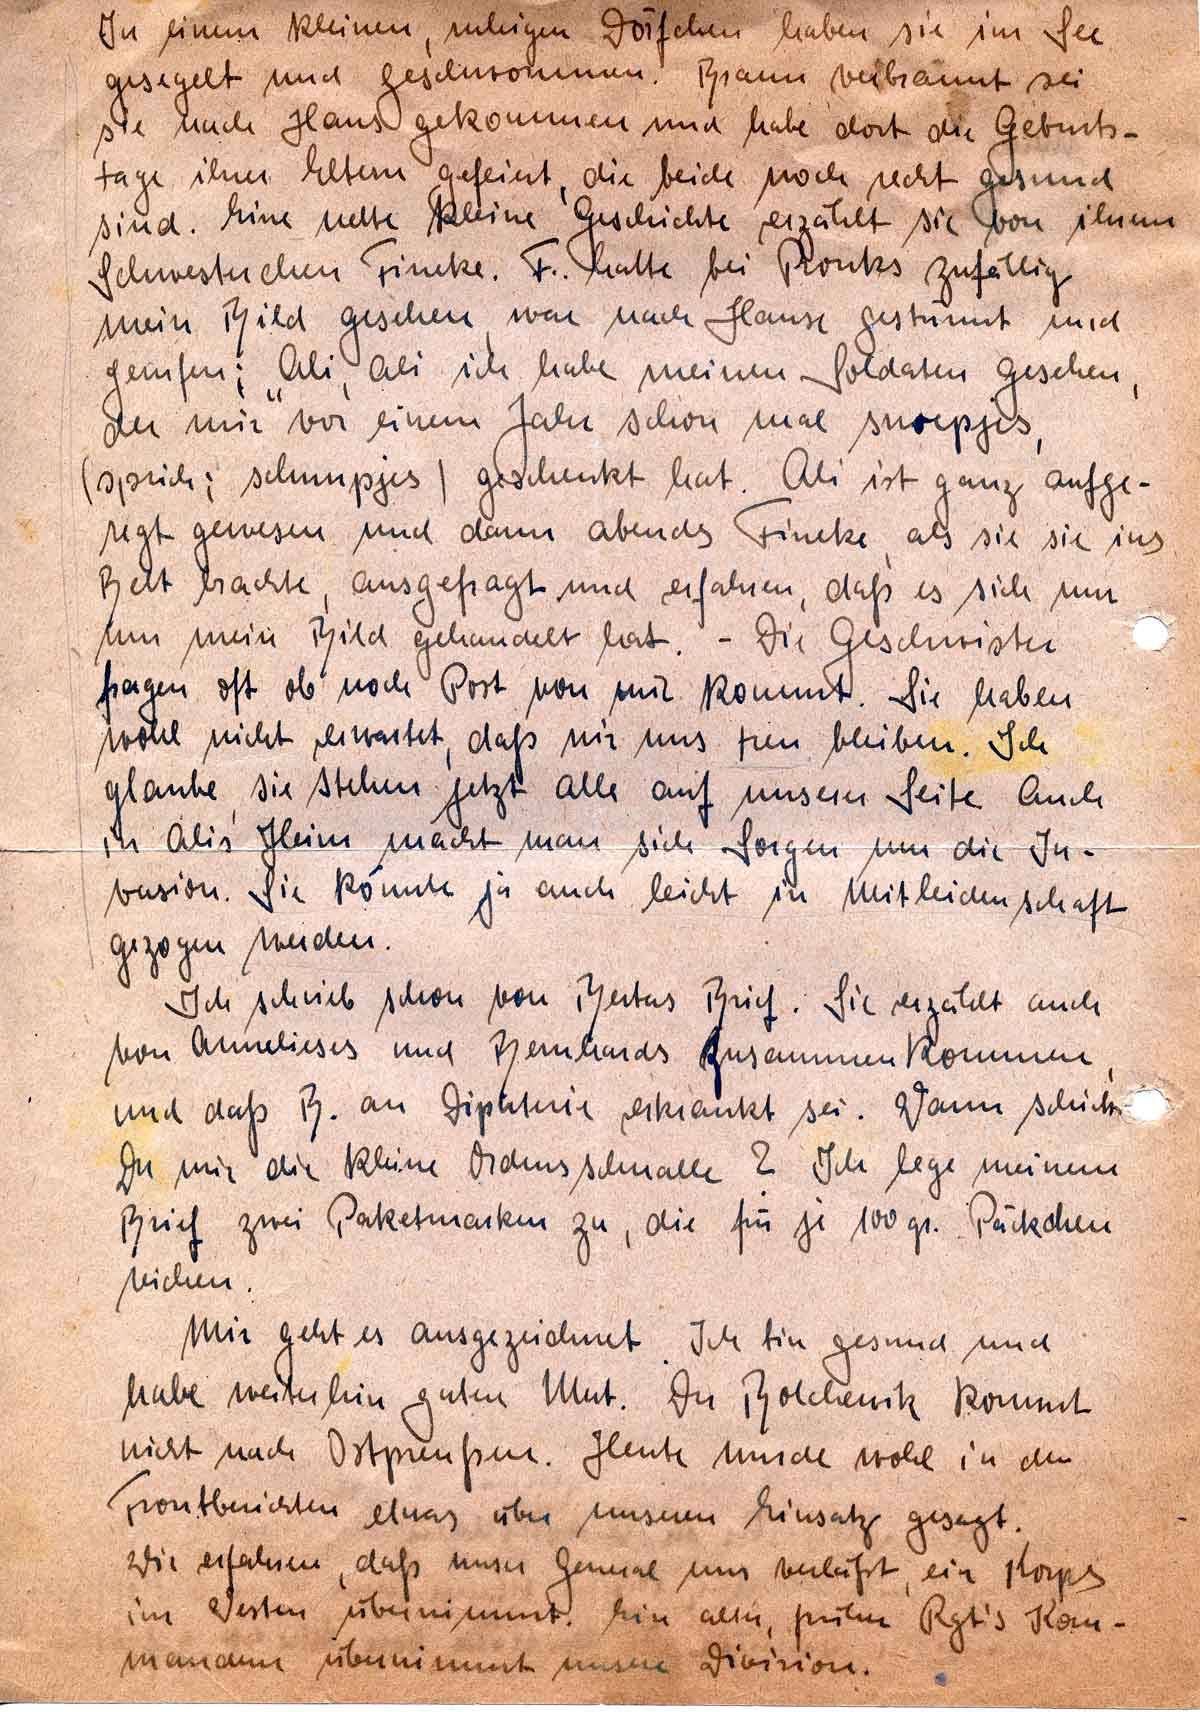 In einem kleinen, ruhigen Dörfchen haben sie im See
gesegelt und geschwommen. Braun verbrannt sei
sie nach Haus gekommen und habe dort die Geburts-
tage ihrer Eltern gefeiert, die beide noch recht gesund
sind. Eine nette kleine Geschichte erzählt sie von ihrem
Schwesterchen Fineke. F.. hatte bei Pronks zufällig
mein Bild gesehen, war nach Hause gestürmt und
gerufen; "Ali, Ali ich habe meinen Soldaten gesehen,
der mir" vor einem Jahr schon mal snoepjes,
(sprich; schnupjes) geschenkt hat. Ali ist ganz aufge-
regt gewesen und dann abends Fineke, als sie sie ins
Bett brachte, ausgefragt und erfahren, daß es sich nur
um mein Bild gehandelt hat. - Die Geschwister
fragen oft ob noch Post von mir kommt. Sie haben
wohl nicht erwartet, daß wir uns treu bleiben. Ich
glaube, sie stehen jetzt alle auf unserer Seite Auch
in Alis Heim macht man sich Sorgen um die In-
vasion. Sie könnte ja auch leicht in Mitleidenschaft
gezogen werden.
Ich schrieb schon von Bertas Brief. Sie erzählt auch
von Annelieses und Bernhards Zusammenkommen,
und daß B. an Diphterie erkrankt sei. Wann schickst
Du mir die kleine Ordensschnalle? Ich lege meinem
Brief zwei Paketmarken zu, die für je 100 gr. Päckchen
reichen.
Mir geht es ausgezeichnet. Ich bin gesund und
habe weiterhin guten Mut. Der Bolchewik kommt
nicht nach Ostpreußen. Heute wurde wohl in den
Frontberichten etwas über unseren Einsatz gesagt.
Wir erfahren, daß unser General uns verläßt, ein Korps
im Westen übernimmt. Ein alter, früher Rgt's Kom-
mandeur übernimmt unsere Division.